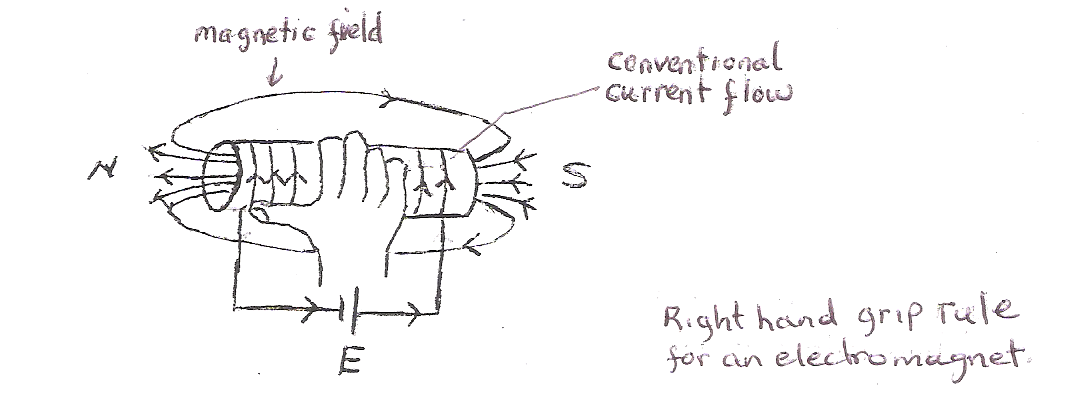 magnetic field
conventional
current flow
N
S
E
Right hand grip rule
for an electromagnet.